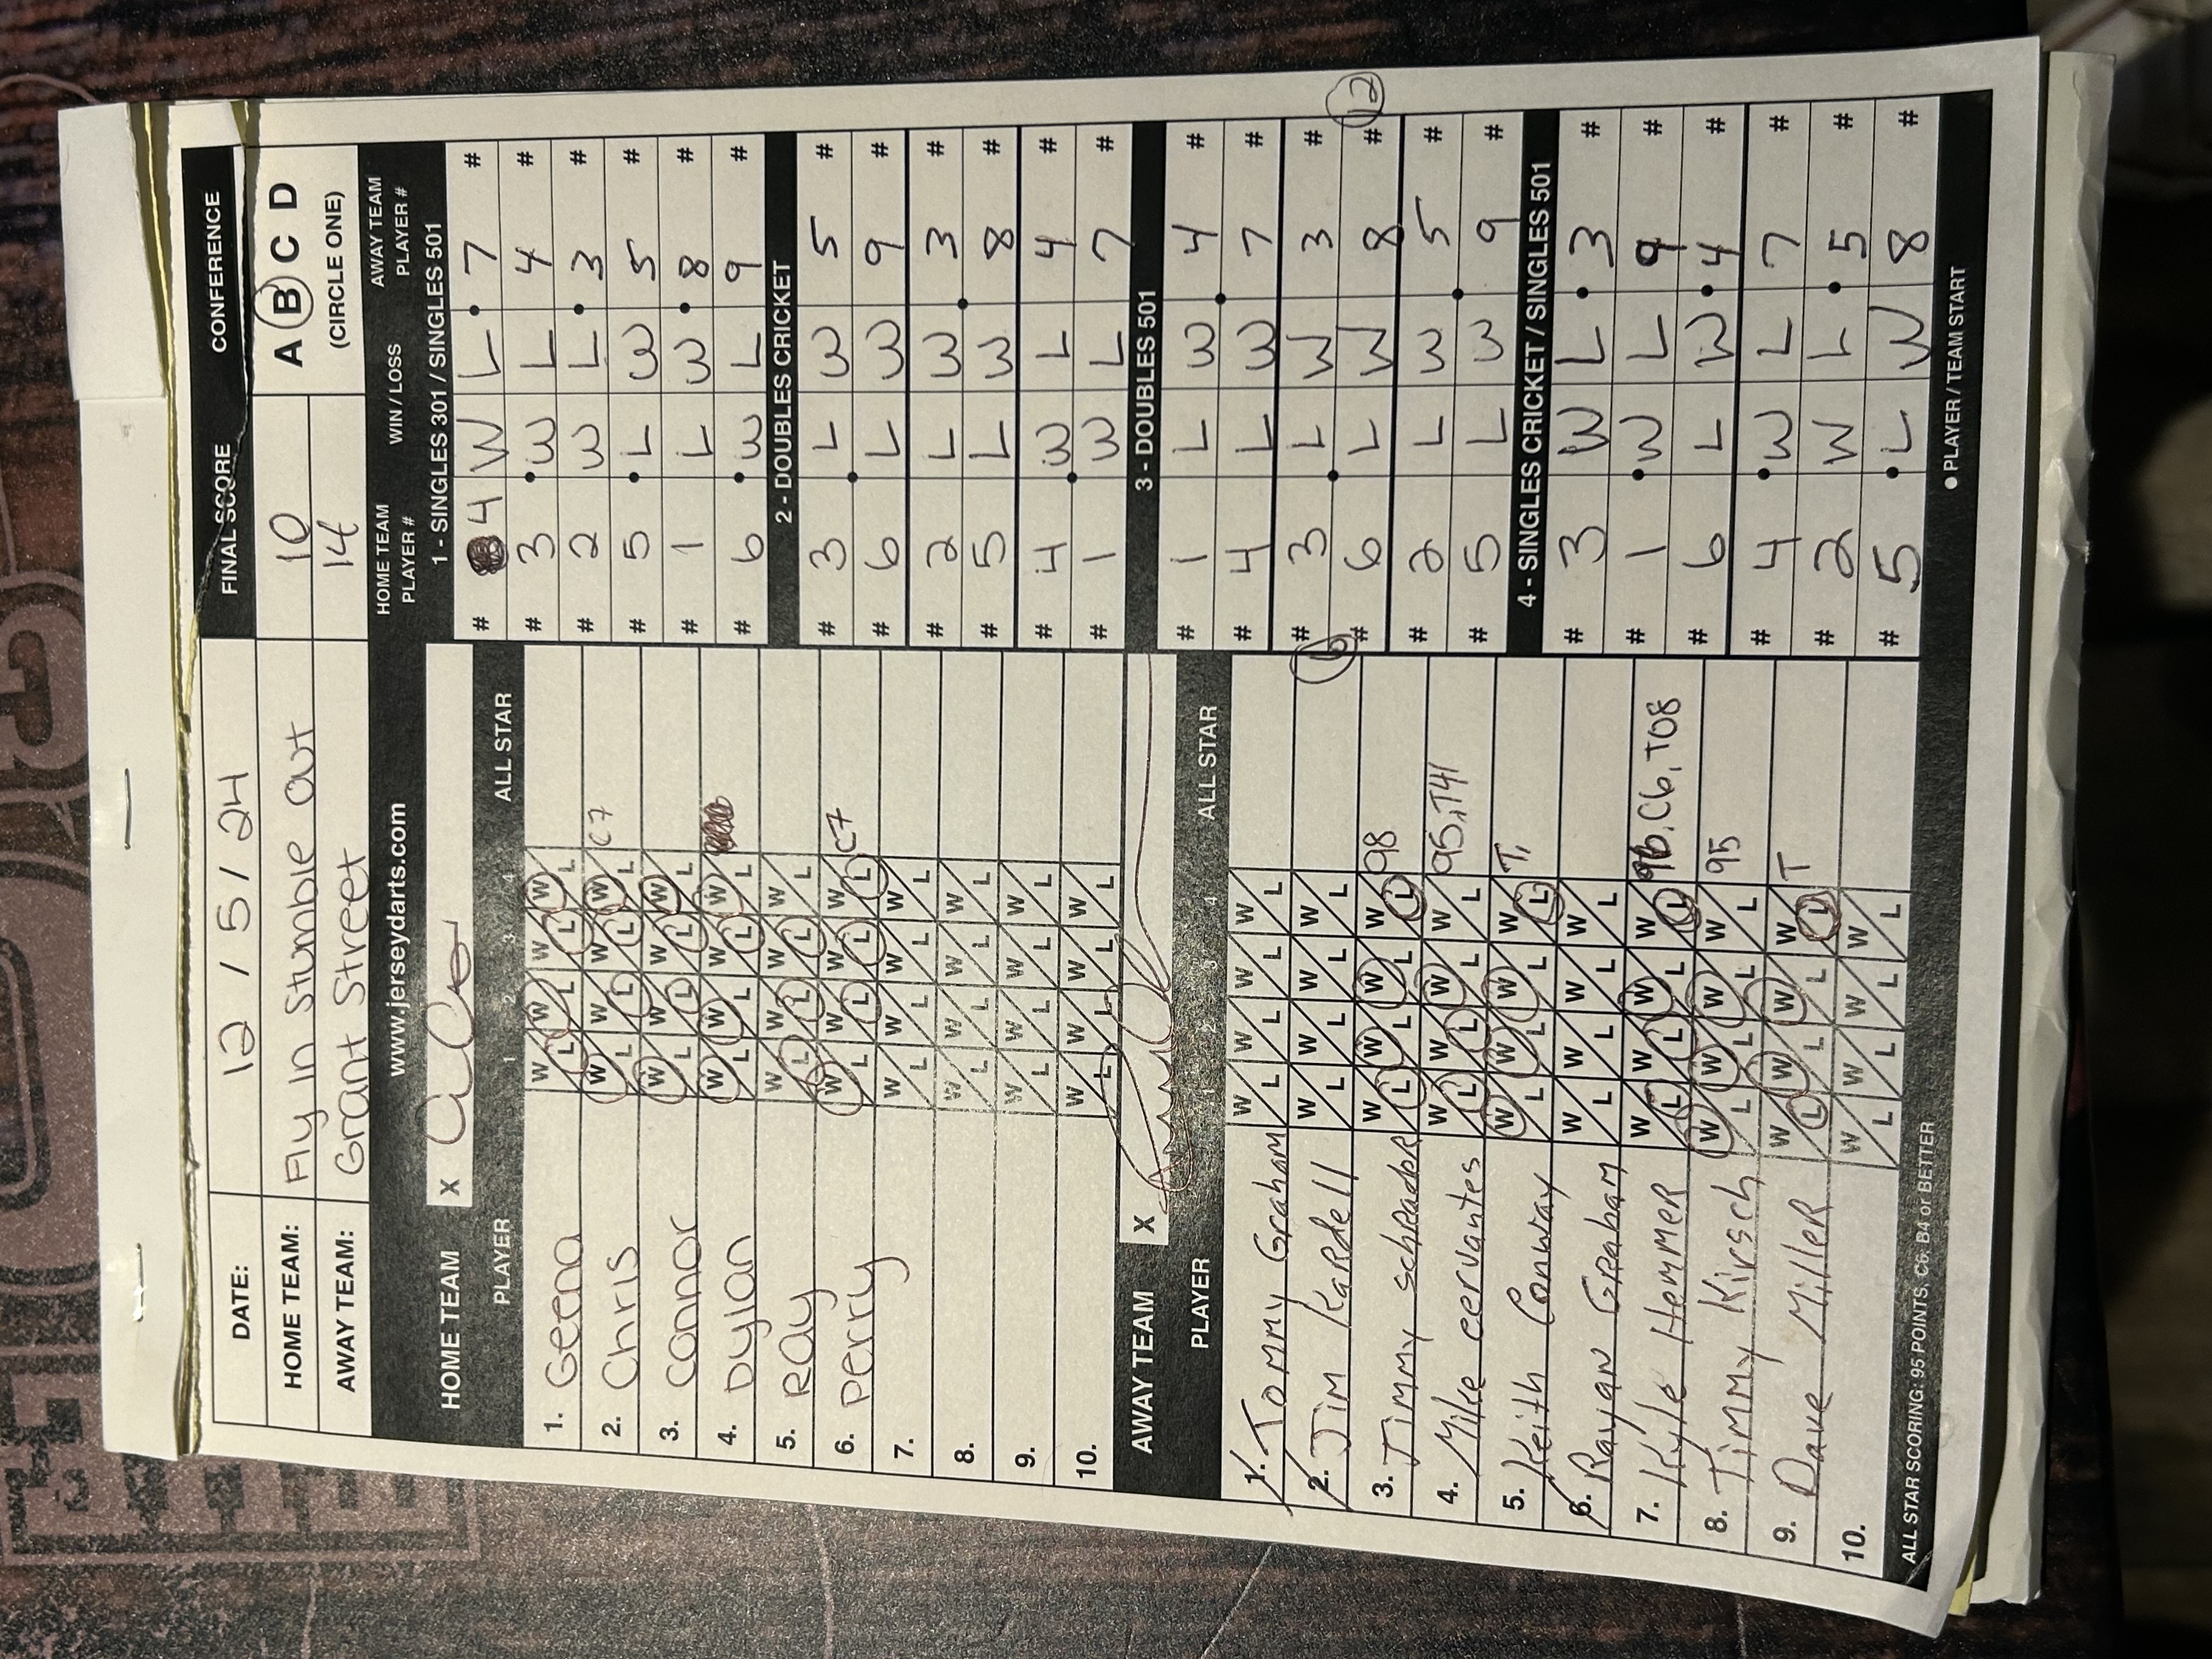 DATE: 12 / 5 / 24
FINAL SCORE CONFERENCE
HOME TEAM: Fly In Stumble Out 10
AWAY TEAM: Grant Street 14
A B C D
(CIRCLE ONE)
www.jerseydarts.com
HOME TEAM X
PLAYER 1 2 3 4 ALL STAR
1. Geena W L W L W L W L
2. Chris W L W L W L W L C7
3. Connor W L W L W L W L
4. Dylan W L W L W L W L
5. Ray W L W L W L W L
6. Perry W L W L W L W L C7
7. W L W L W L W L
8. W L W L W L W L
9. W L W L W L W L
10. W L W L W L W L
AWAY TEAM X
PLAYER 1 2 3 4 ALL STAR
1. Tommy Graham W L W L W L W L
2. Jim Kardell W L W L W L W L
3. Timmy schrader W L W L W L W L 98
4. Mike cervantes W L W L W L W L 95, T41
5. Keith Conway W L W L W L W L T,
6. Rayan Graham W L W L W L W L
7. Kyle Hemmer W L W L W L W L 96, C6, T08
8. Timmy Kirsch W L W L W L W L 95
9. Dave Miller W L W L W L W L T
10. W L W L W L W L
ALL STAR SCORING: 95 POINTS, C6, B4 or BETTER
HOME TEAM PLAYER # WIN / LOSS AWAY TEAM PLAYER #
1 - SINGLES 301 / SINGLES 501
# 4 W L • 7 #
# 3 • W L 4 #
# 2 W L • 3 #
# 5 • L W 5 #
# 1 L W • 8 #
# 6 • W L 9 #
2 - DOUBLES CRICKET
# 3 L W 5 #
# 6 L W 9 #
# 2 L W 3 #
# 5 L W 8 #
# 4 W L 4 #
# 1 W L 7 #
3 - DOUBLES 501
# 1 L W 4 #
# 4 L W 7 #
# 3 L W 3 #
6
# 6 L W 8 # 12
# 2 L W 5 #
# 5 L W 9 #
4 - SINGLES CRICKET / SINGLES 501
# 3 W L • 3 #
# 1 • W L 9 #
# 6 L W • 4 #
# 4 • W L 7 #
# 2 W L • 5 #
# 5 • L W 8 #
• PLAYER / TEAM START